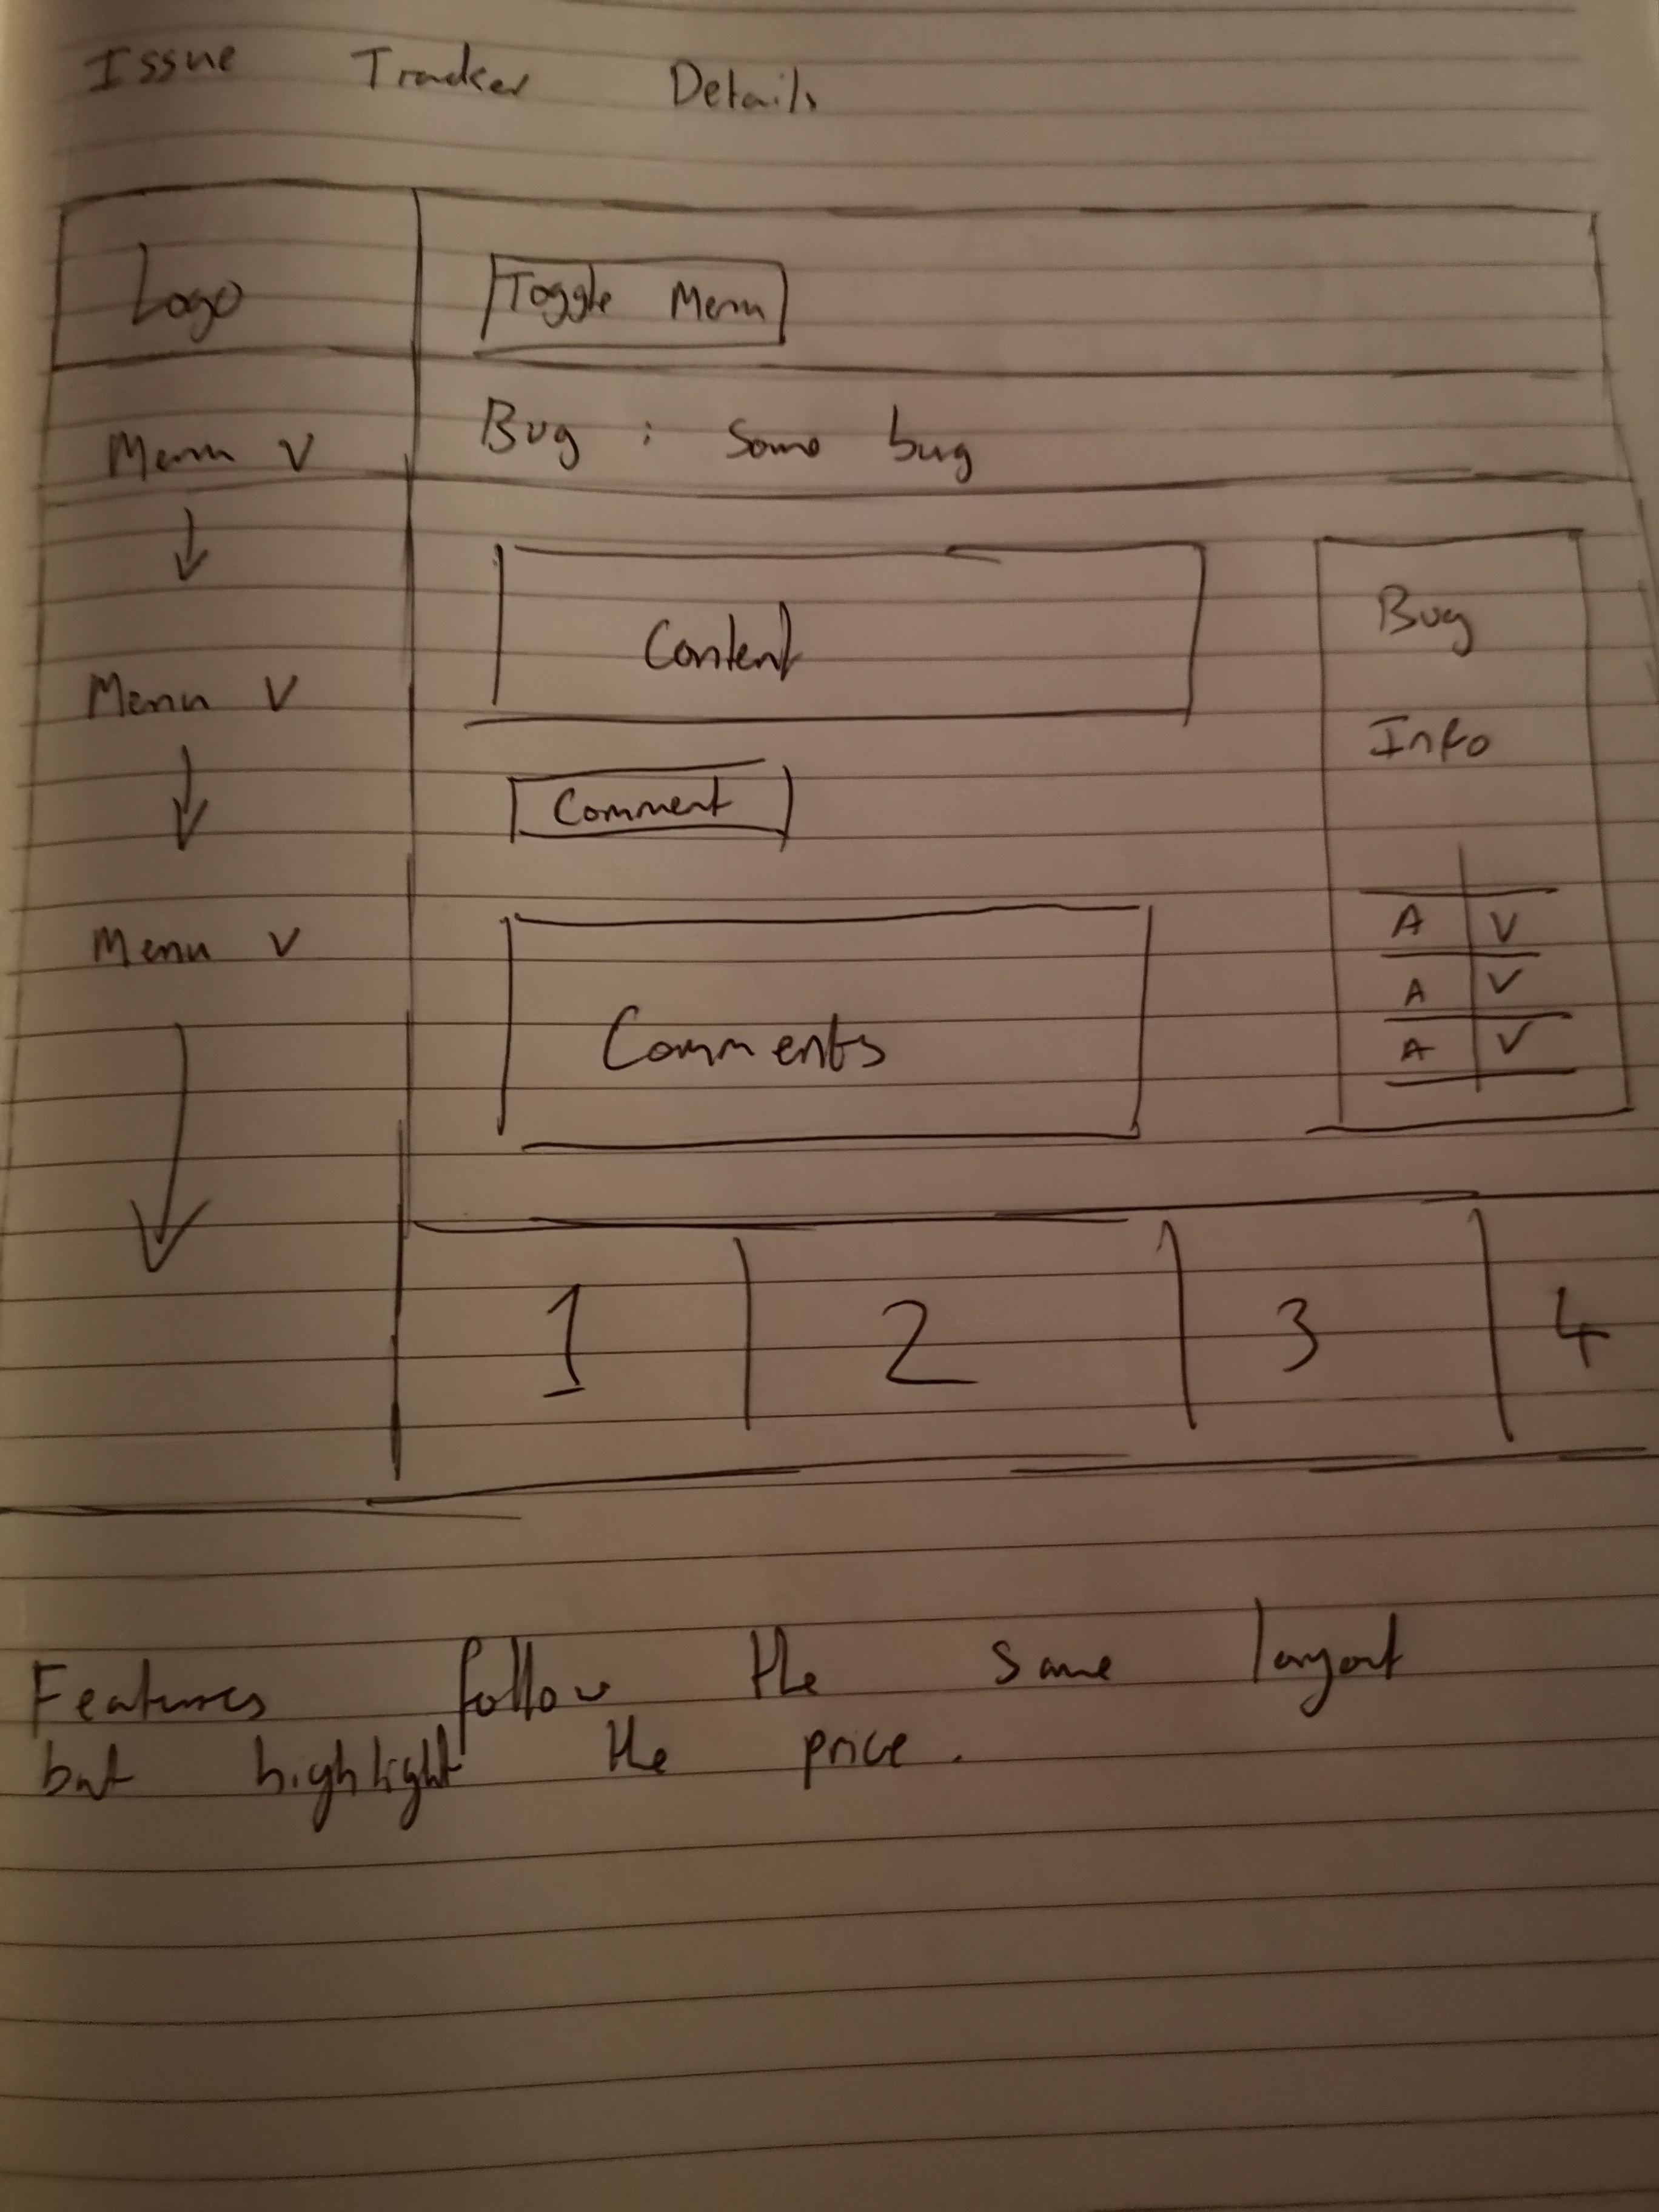 Issue Tracker Details
Logo
Toggle Menu
Menu V
Bug : Some bug
Menu V
Menu V
Content
Comment
Comments
Bug
Info
A V
A V
A V
1 2 3 4
Features follow the same layout
but highlight the price.